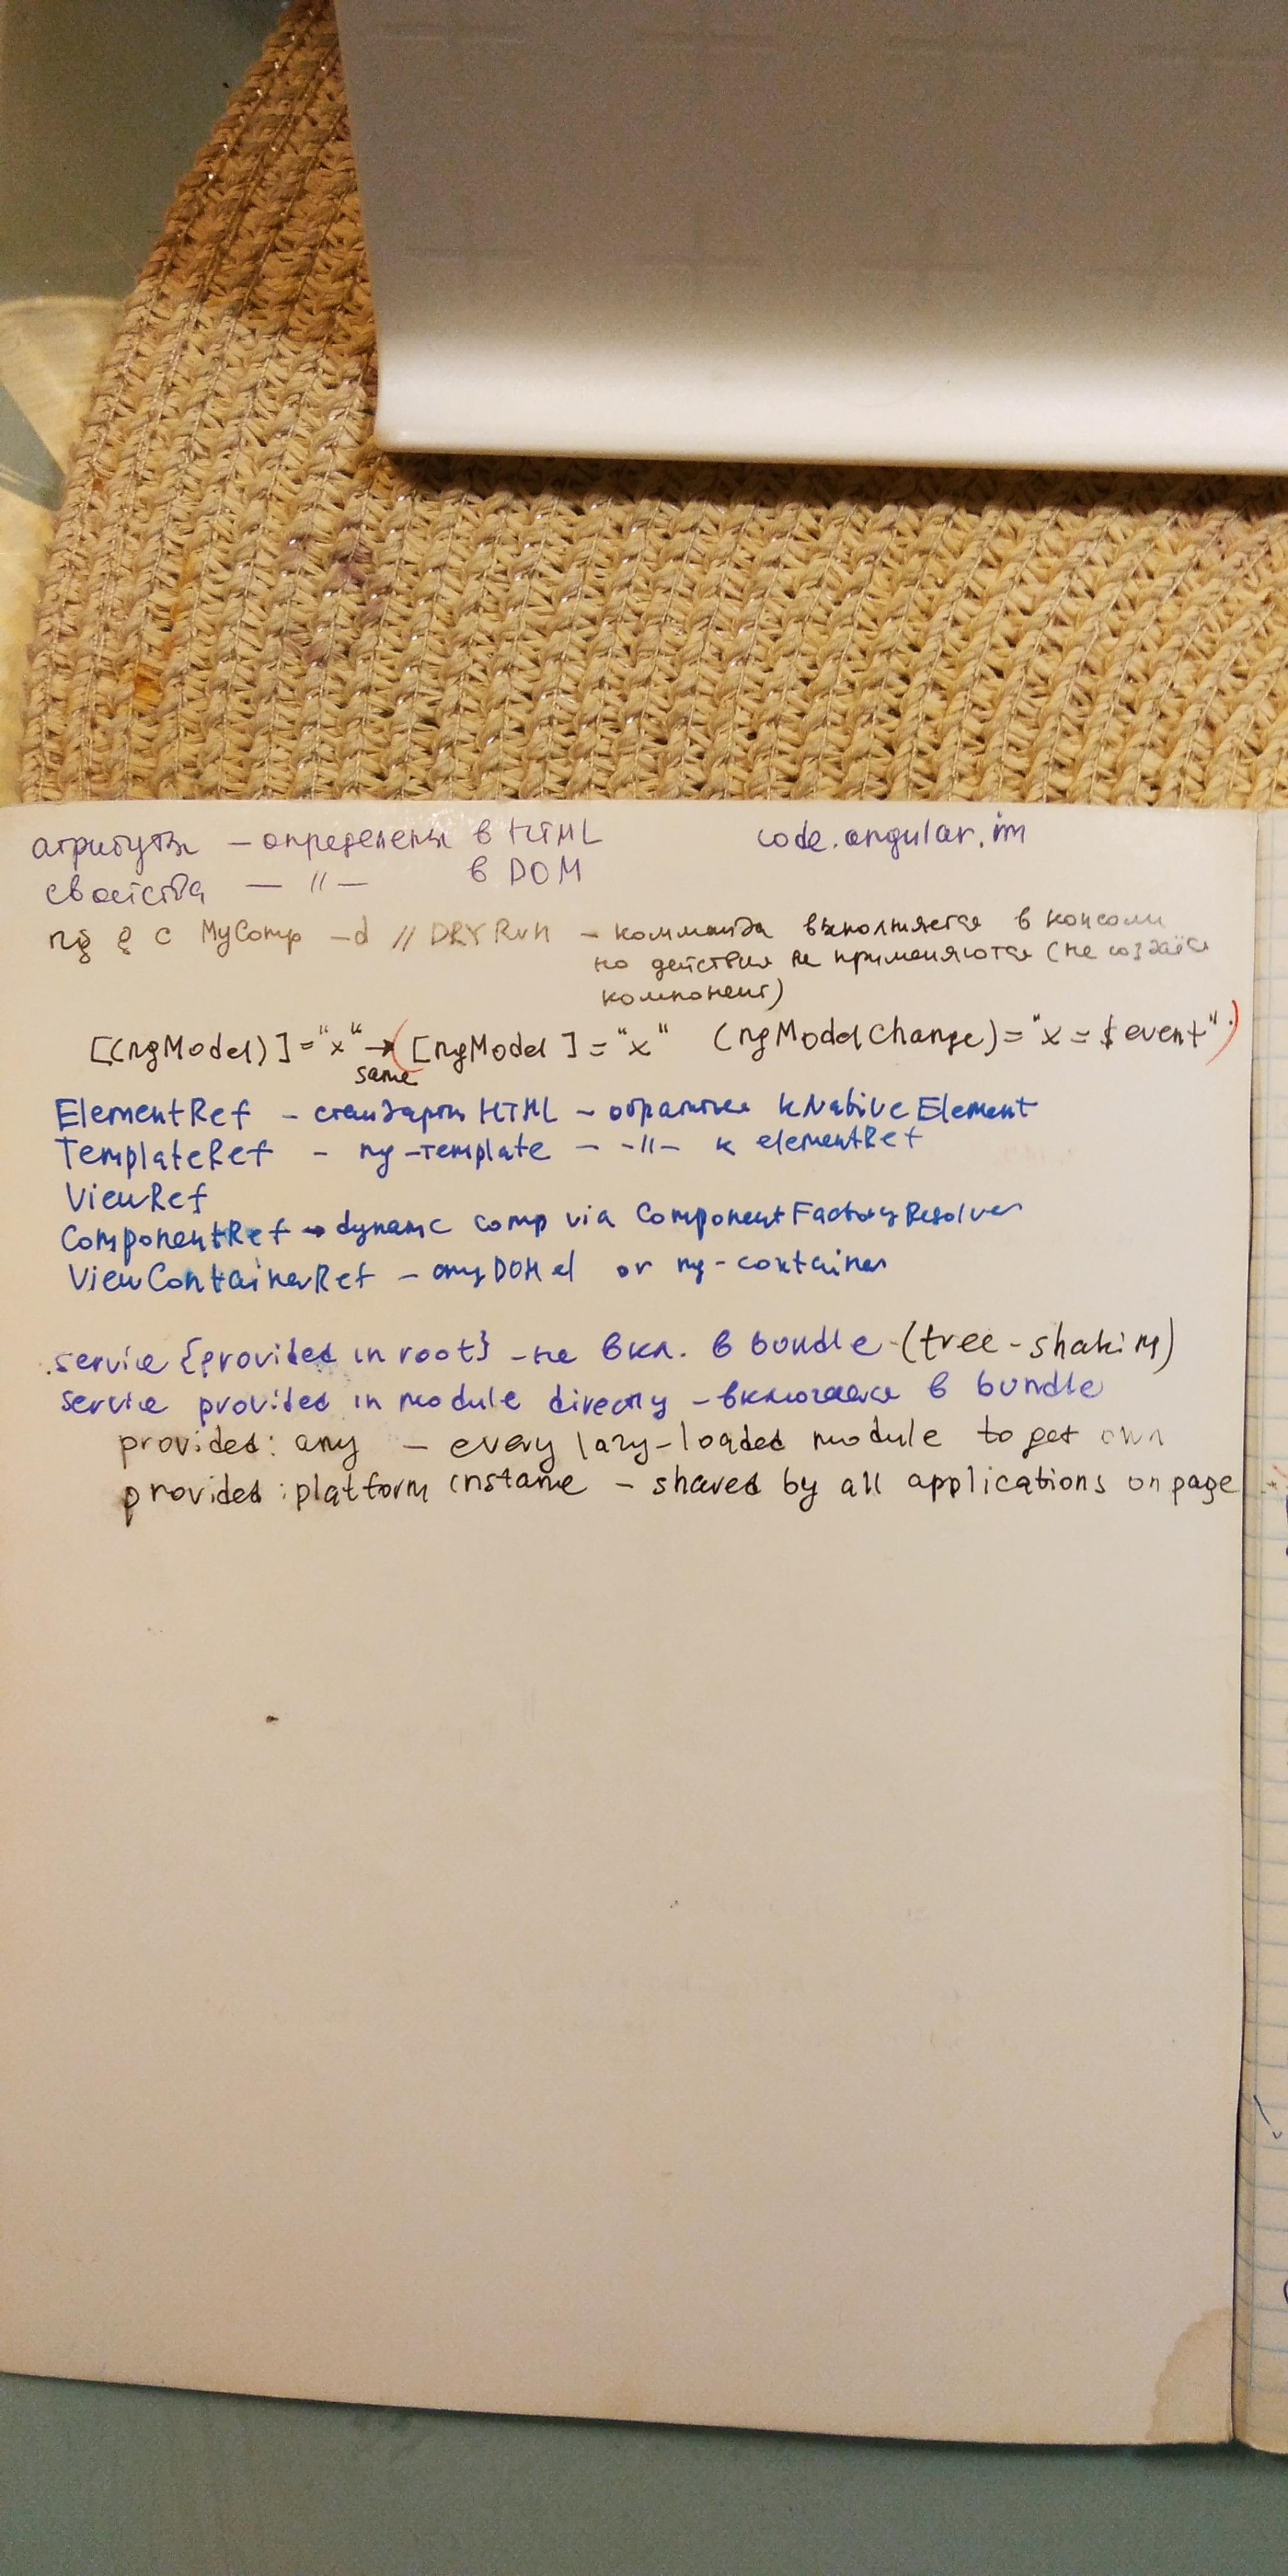 атрибуты — определены в HTML code.angular.im
свойства — // — в DOM
ng g c MyComp -d // DRY RUN - комманда выполняется в консоли
но действия не применяются (не создаёся
компонент)
[(ngModel)]="x" → ([ngModel]="x" (ngModelChange)="x=$event")
same
ElementRef - стандартн HTML - обратится к NativeElement
TemplateRef - ng-template - -//- к elementRef
ViewRef
ComponentRef → dynamc comp via ComponentFactoryResolver
ViewContainerRef - any DOM el or ng-container
service {provided in root} - не вкл. в bundle (tree-shakim)
service provided in module directly - включается в bundle
provided: any - every lazy-loaded module to get own
provided: platform instance - shared by all applications on page